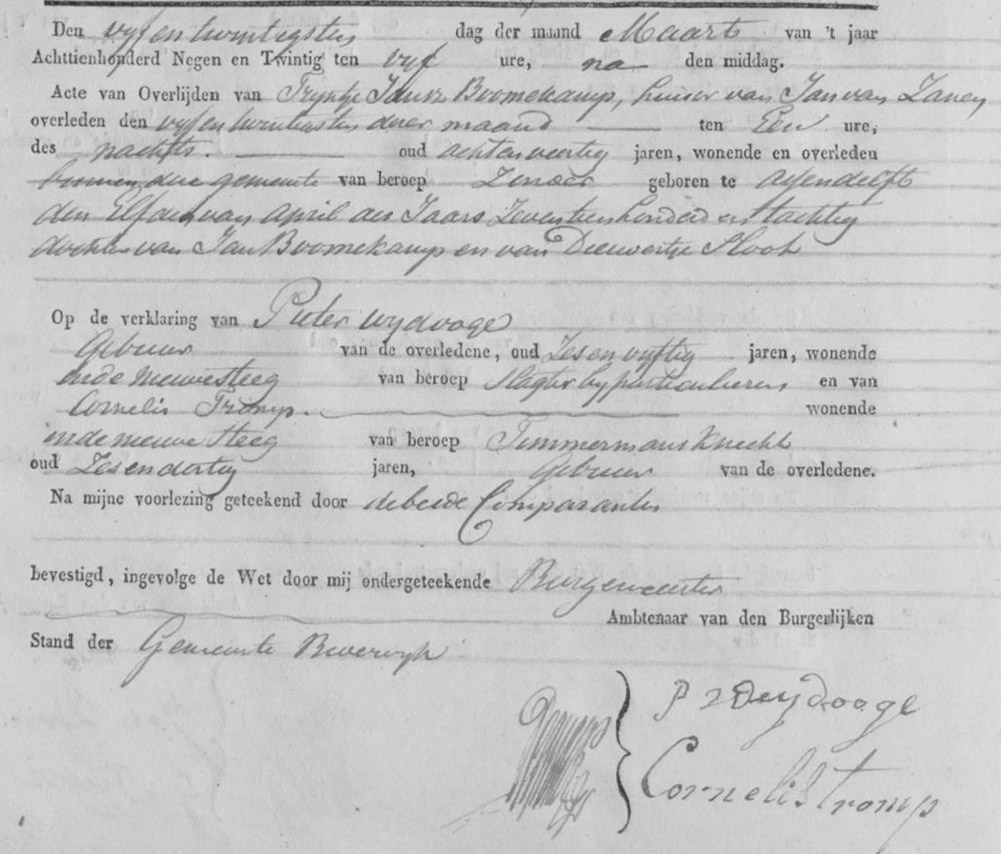 Den vyfentwintigsten dag der maand Maart van 't jaar
Achttienhonderd Negen en Twintig ten vyf ure, na den middag.
Acte van Overlijden van Tryntje Jans Boomekamp, huisvr van Jan van Zanen
overleden den vyfentwintigsten dezer maand ten Een ure,
des nachts. oud achtenveertig jaren, wonende en overleden
binnen deze gemeente van beroep Zonder geboren te Assendelft
den Elfden van april des Jaars Zeventienhonderd en tachtig
dochter van Jan Boomekamp en van Dieuwertje Sloot
Op de verklaring van Pieter Wydooge
Gebuur van de overledene, oud Zesenvyftig jaren, wonende
inde nieuwesteeg van beroep Slagter by particulieren en van
Cornelis Tromp. wonende
inde nieuwe steeg van beroep Timmermans Knecht
oud Zesendertig jaren, Gebuur van de overledene.
Na mijne voorlezing geteekend door de beide Comparanten
bevestigd, ingevolge de Wet door mij ondergeteekende Burgemeester
Ambtenaar van den Burgerlijken
Stand der Gemeente Beverwyk
P Weydooge
Cornelis tromp